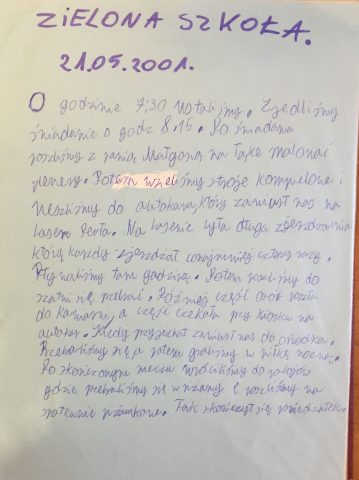 ZIELONA SZKOŁA.
21.05.2001.
O godzinie 7:30 wstaliśmy. Zjedliśmy
śniadanie o godz 8.15. Po śniadaniu
poszliśmy z panią Małgosią na łąkę malować
plenery. Potem wzieliśmy stroje kompielowe i
weszliśmy do autokaru, który zawiusł nas na
basen. Na basenie była długa zjeżdżalnia
którą każdy zjeżdżał conajmniej cztery razy.
Pływaliśmy tam godzinę. Potem poszliśmy do
szatni się przebrać. Później część osób poszła
do kawiarni, a część czekała przy kiosku na
autokar. Kiedy przyjechał zawiusł nas do ośrodka.
Przebraliśmy się, a potem graliśmy w piłkę nożną.
Po skończonym meczu wróciliśmy do pokojów
gdzie przebraliśmy się w piżamy i poszliśmy na
spotkanie piżamkowe. Tak skończył się poniedziałek.